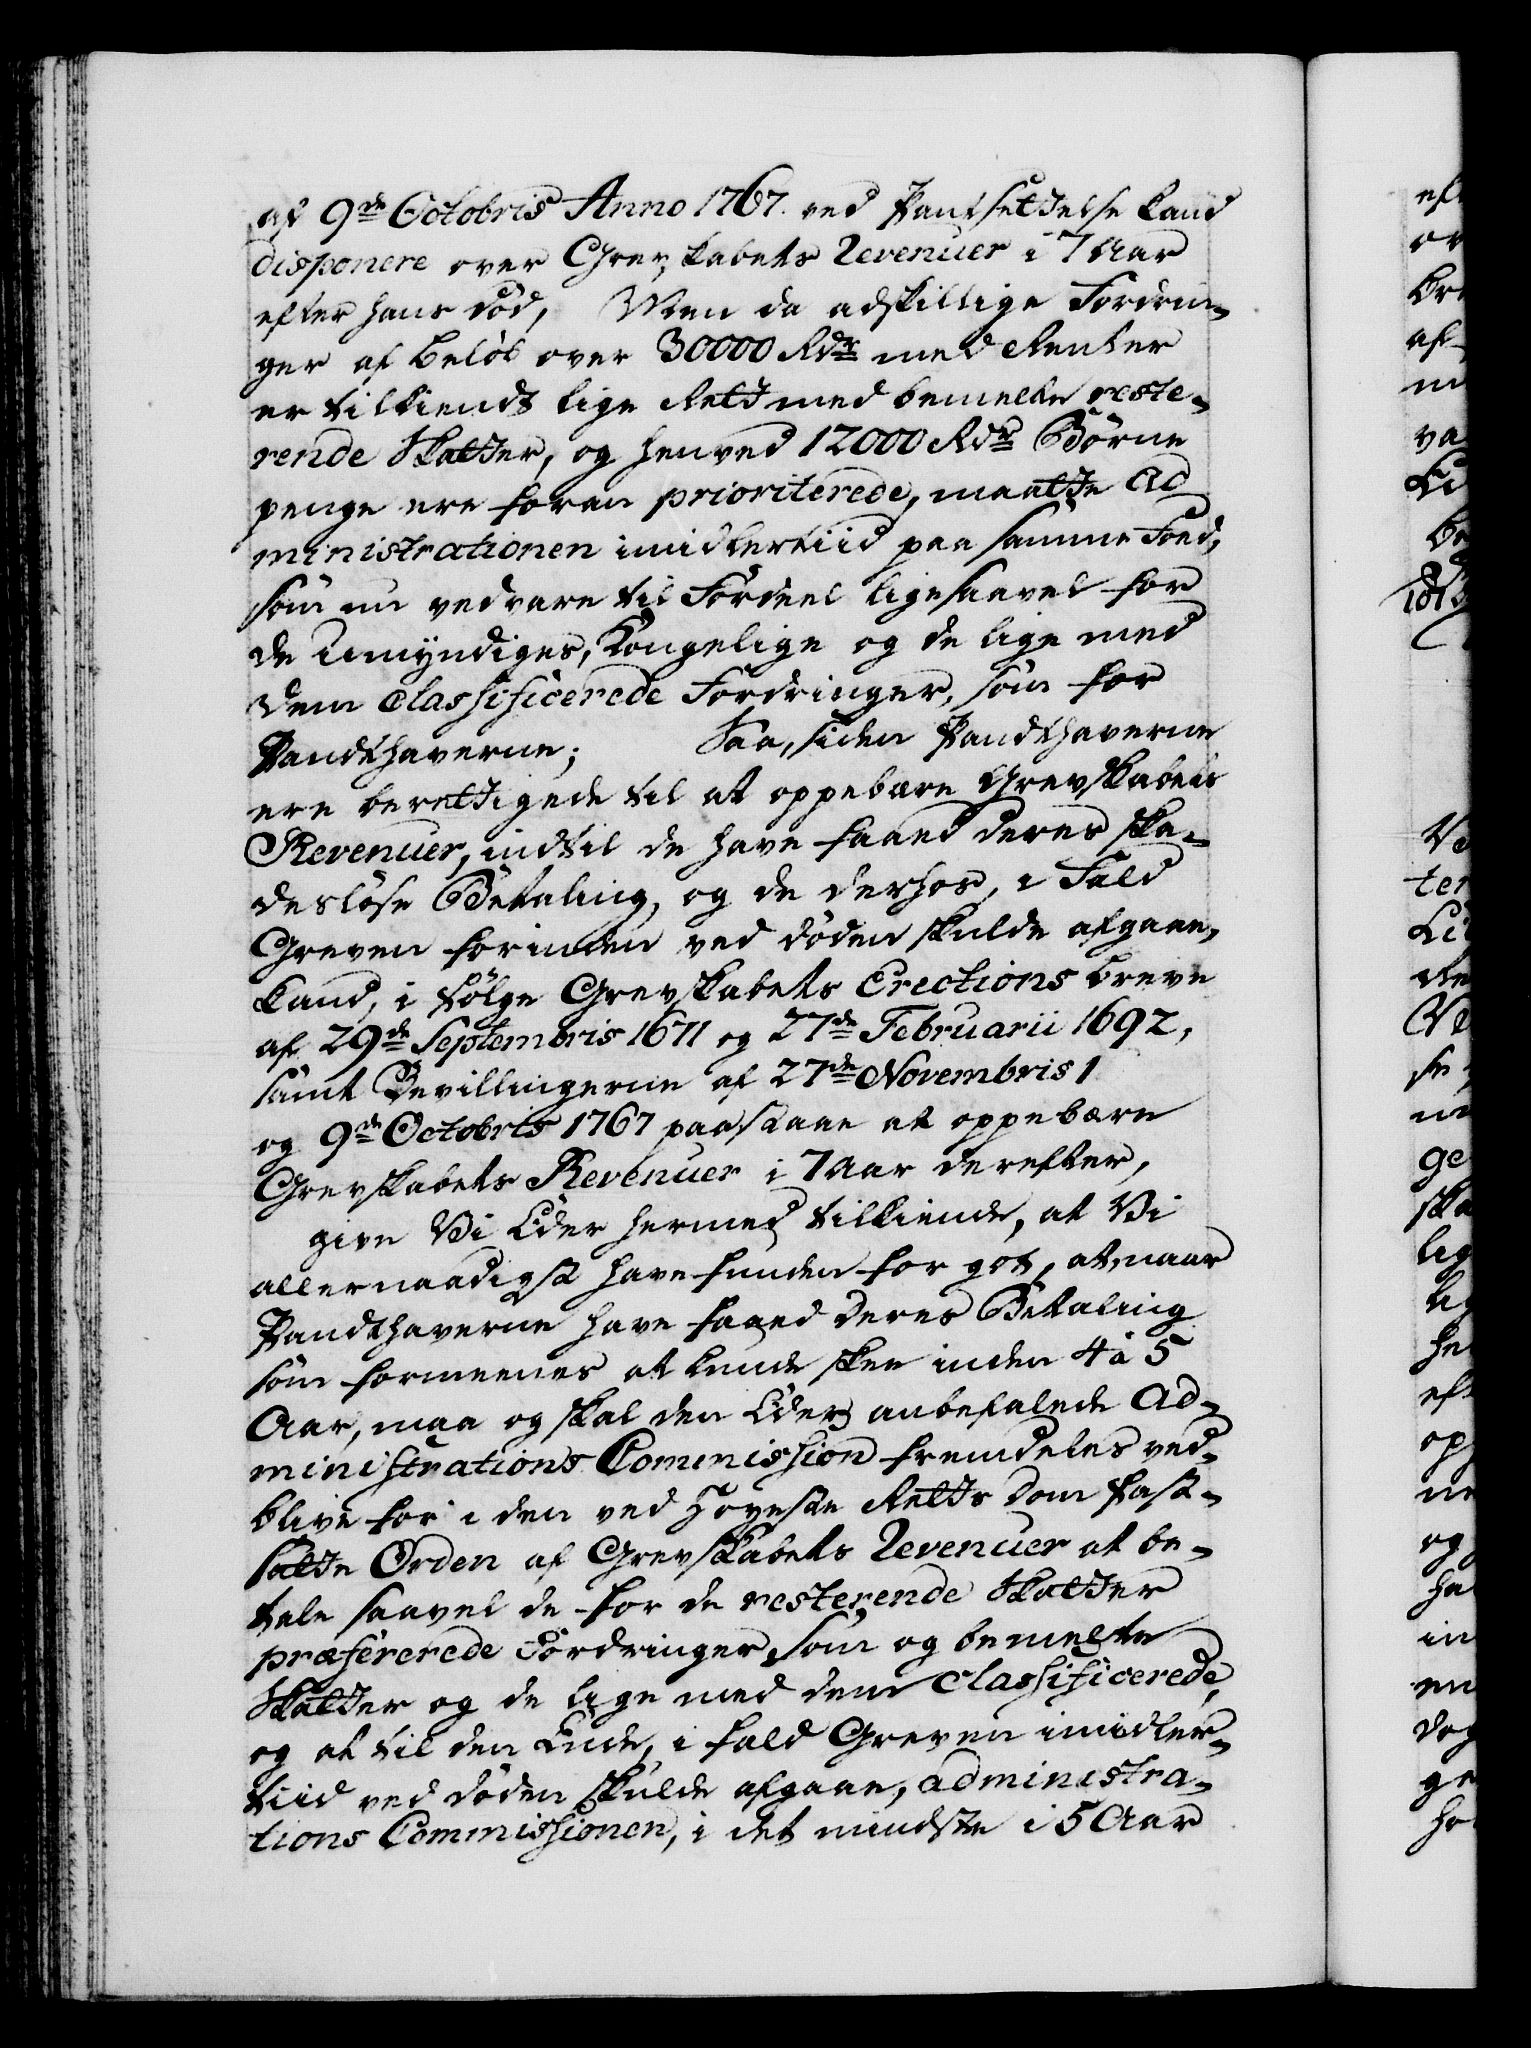 af 9de Octobris Anno 1767. ved Pantsettelse kand
disponere over Grevskabets Revenuer i 7 Aar
efter hans død, Men da adskillige Fordrin-
ger af Beløb over 30000 Rdr med Renter
er tilkiendt lige Rett med bemelte reste-
rende Skatter, og henved 12000 Rdr Børne
penge ere foran prioriterede, maatte Ad
ministrationen imidlertiid paa samme Foed,
som nu vedvare til Fordeel ligesaavel for
de Umyndiges, Kongelige og de lige med
dem classificerede Fordringer, som for
Pandthaverne; Saa, siden Pandthaverne
ere berettigede til at oppebære Grevskabets
Revenuer, indtil de have faaed deres ska-
desløse Betaling, og de derhos, i Fald
Greven forinden ved døden skulde afgaae,
kand, i følge Grevskabets Erections breve
af 29de Septembris 1671 og 27de Februarii 1692,
samt Bevillingerne af 27de Novembris 1
og 9de Octobris 1767 paastaae at oppebære
Grevskabets Revenuer i 7 Aar derefter,
give Vi Eder hermed tilkiende, at Vi
allernaadigst have funden for got, at naar
Pandthaverne have faaed deres Betaling
som formeenes at kunde skee inden 4 à 5
Aar, maa og skal den Eder anbefalede Ad-
ministrations Commission fremdeles ved-
blive for i den ved Høyeste Retts Dom fast-
satte Orden af Grevskabets Revenuer at be-
tale saavel de for de resterende Skatter
præfererede Fordringer, som og bemelte
Skatter og de lige med dem classificerede,
og at til den Ende, i fald Greven imidler-
tiid ved døden skulde afgaae, administra-
tions Commissionen, i det mindste i 5 Aar